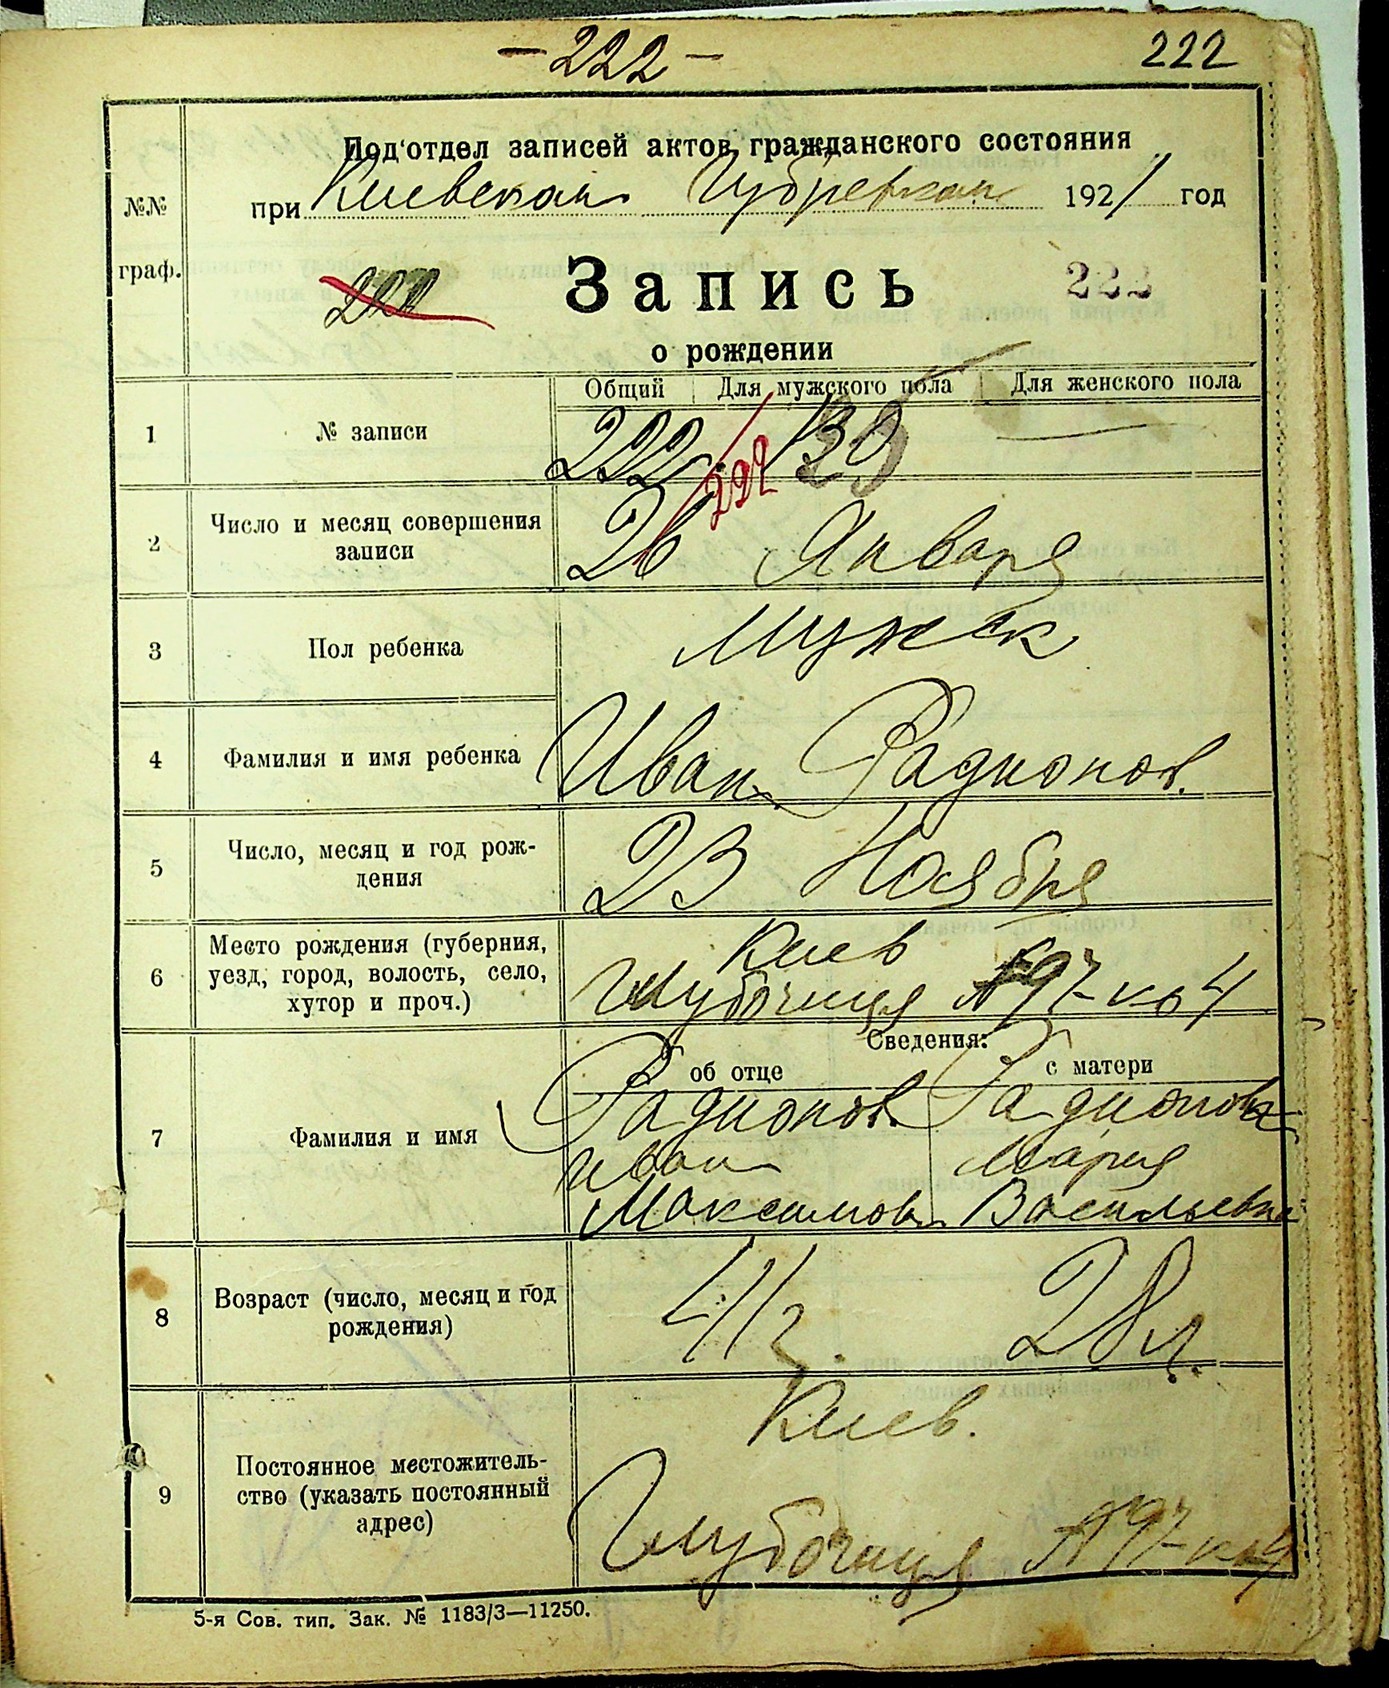 - 222 -
222
Под'отдел записей актов гражданского состояния
№№
граф.
при Киевском Губревком 1921 год
222
Запись
222
о рождении
Общий Для мужского пола Для женского пола
1 № записи 222 139 —
222
2 Число и месяц совершения
записи
26 Января
3 Пол ребенка Мужск
4 Фамилия и имя ребенка Иван Радионов.
5 Число, месяц и год рож-
дения
23 Ноября
6 Место рождения (губерния,
уезд, город, волость, село,
хутор и проч.)
Киев
Глубочиця №97-кв 4
Сведения:
об отце с матери
7 Фамилия и имя
Радионов Радионова
Иван Мария
Максимов Васильевна
8 Возраст (число, месяц и год
рождения)
41 г. 28 л.
9 Постоянное местожитель-
ство (указать постоянный
адрес)
Киев.
Глубочиця №97-кв 4
5-я Сов. тип. Зак. № 1183/3—11250.